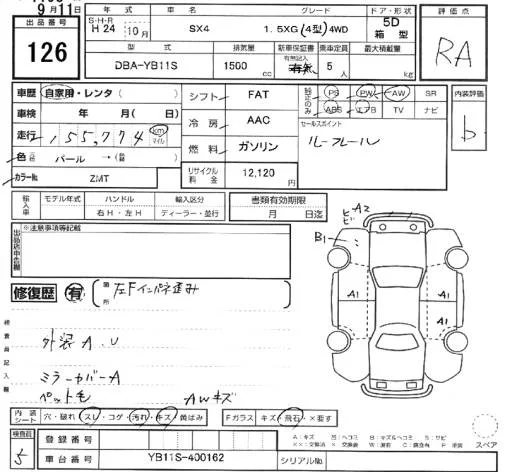 9月11日
出品番号
126
年式
S・H・R
H 24年 10月
車名
SX4
グレード
1.5XG (4型) 4WD
ドア・形状
5D
箱型
型式
DBA-YB11S
排気量
1500 cc
新車保証書
有 無
乗車定員
5
人
最大積載量
kg
評価点
RA
車歴 自家用・レンタ ( )
車検 年 月( 日)
走行 155,774 km マイル
色 パール →( )
カラーNo ZMT
シフト FAT
冷房 AAC
燃料 ガソリン
リサイクル料金 12,120 円
PS PW AW SR
ABS エアB TV ナビ
セールスポイント
ルーフレール
内装評価
b
輸入車
モデル年式
ハンドル
右H・左H
輸入区分
ディーラー・並行
書類有効期限
月 日迄
出品店申告欄
※注意事項等記載
修復歴 有
左Fインパネ歪み
検査員記入欄
外装 A.U
ミラーカバーA
ペット毛
AWキズ
A2
B1
A1
A1
内装シート
穴・破れ・スレ・コゲ・汚れ・キズ・黄ばみ
Fガラス キズ・飛石・×要す
検査員
5
登録番号
車台番号 YB11S-400162
シリアルNo.
スペア